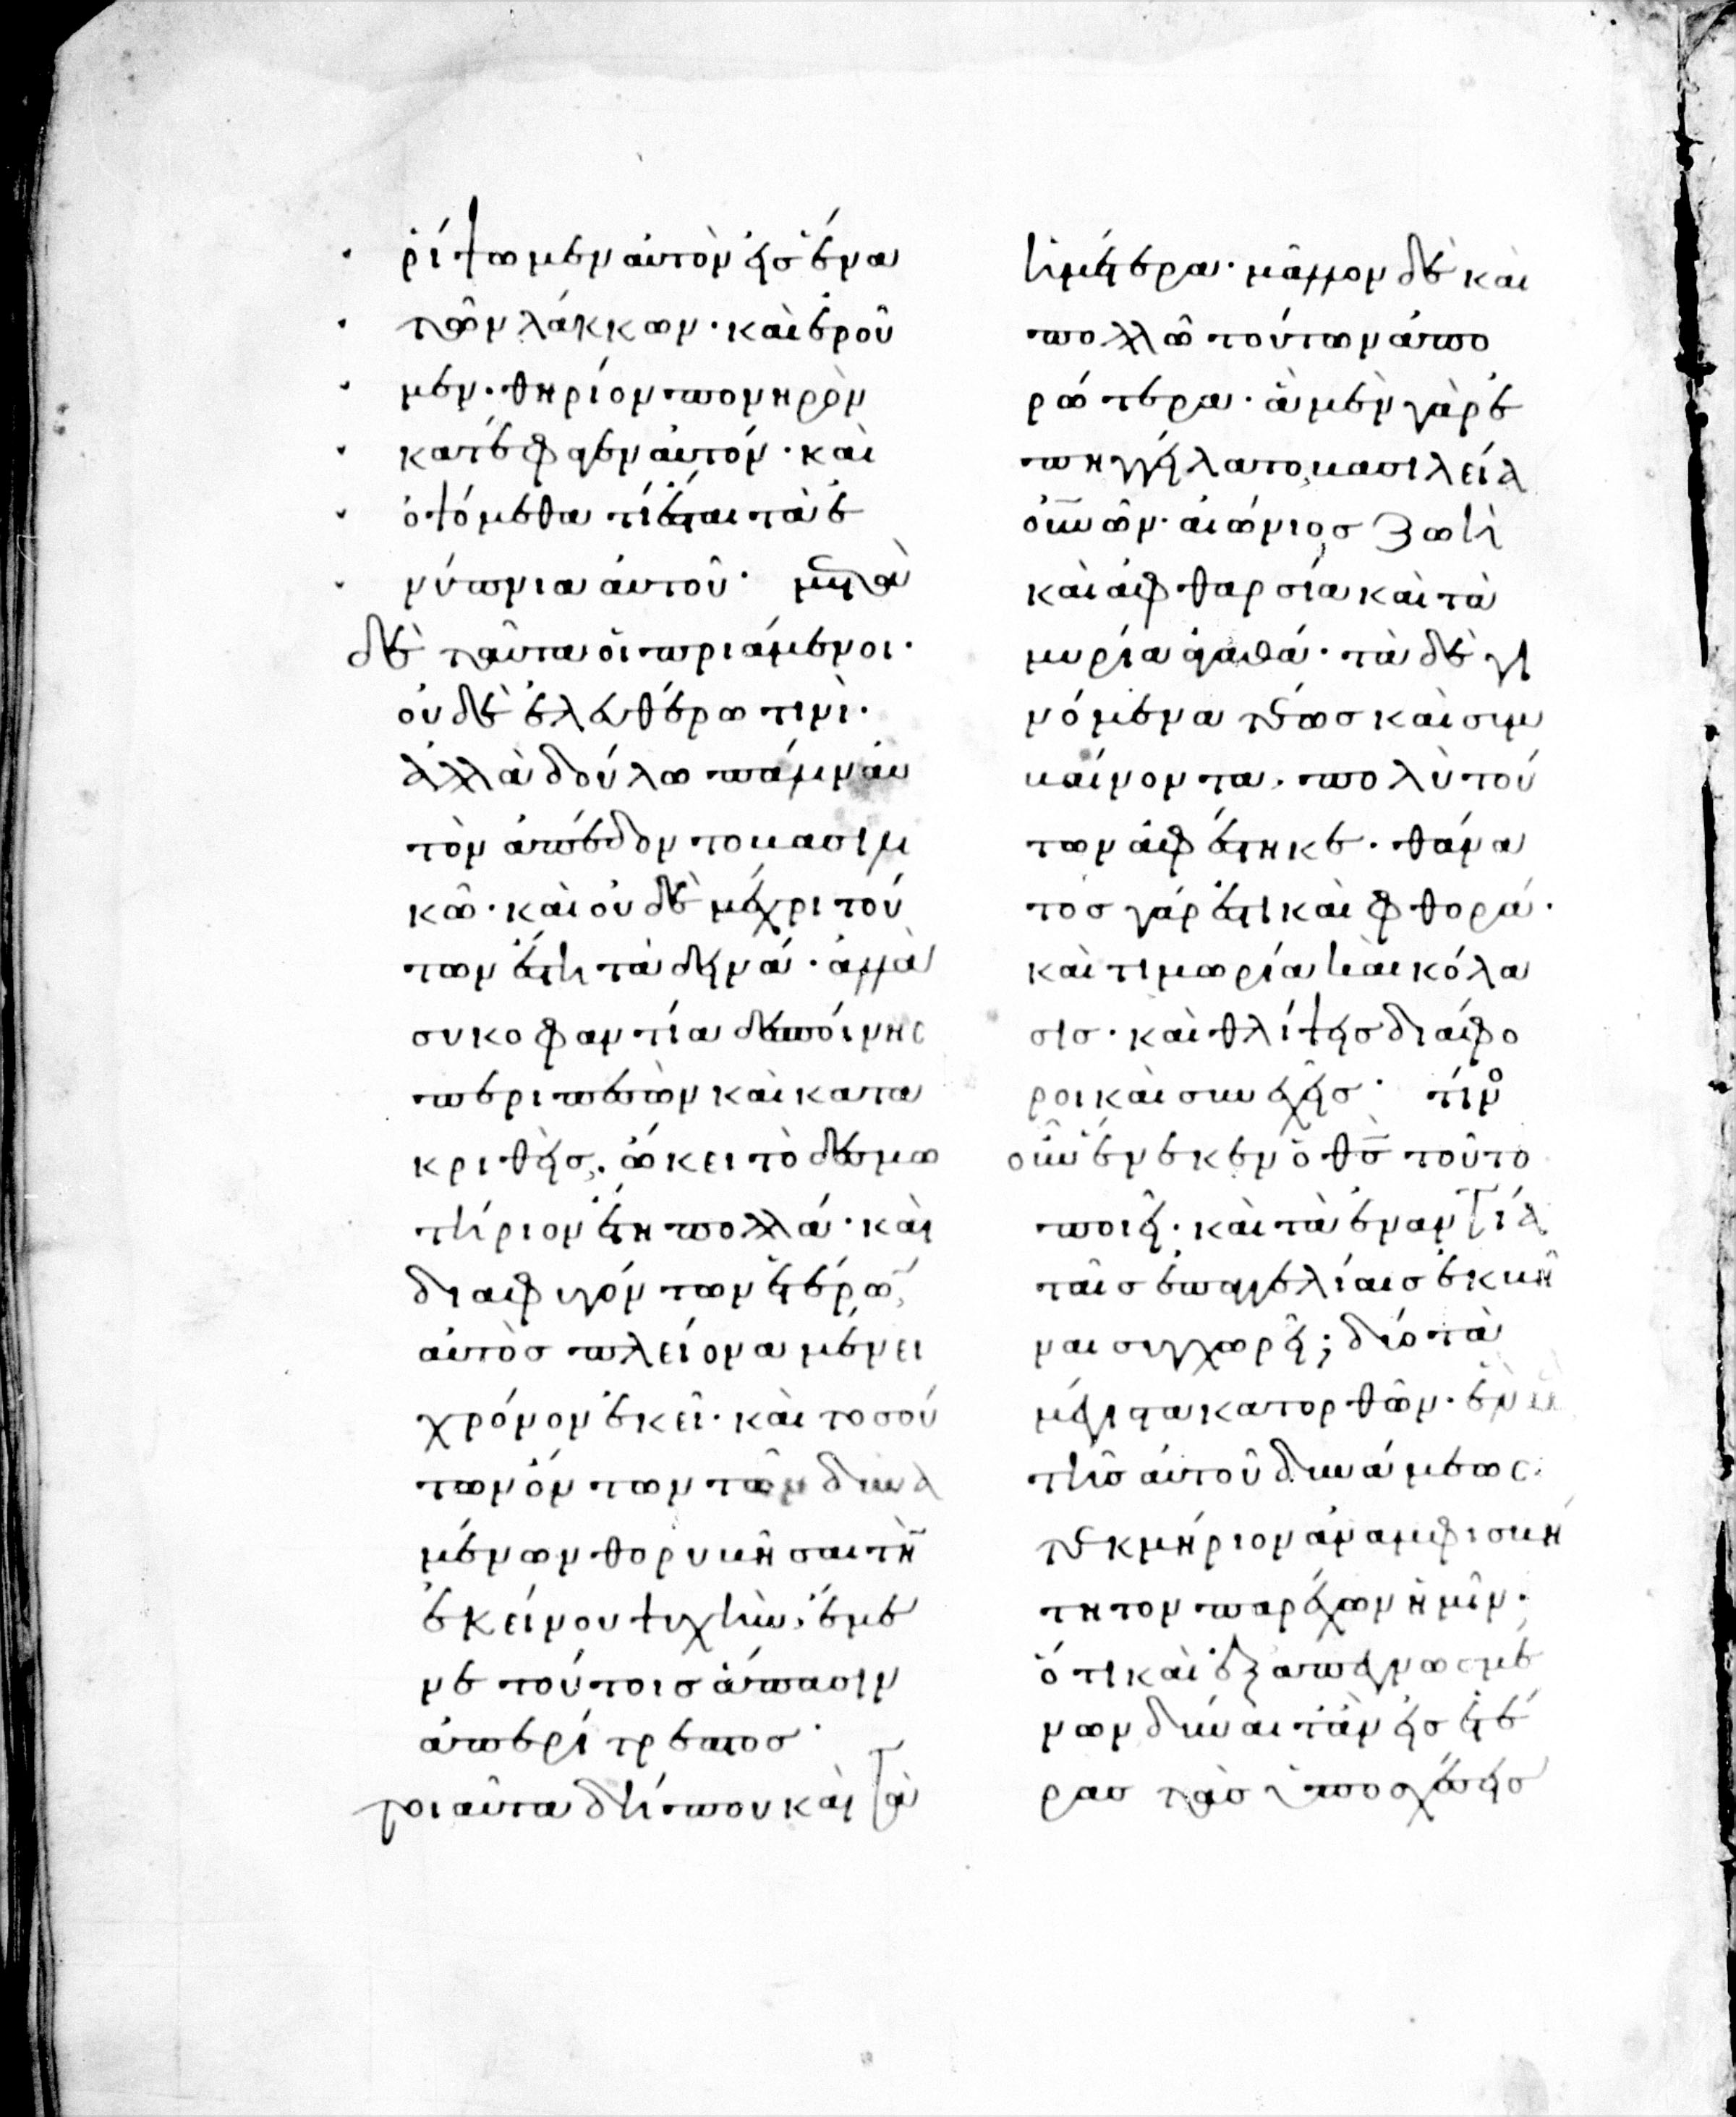 ῥίψωμεν αὐτὸν εἰς ἕνα
τῶν λάκκων· καὶ ἐροῦ
μεν· θηρίον πονηρὸν
κατέφαγεν αὐτόν· καὶ
ὀψόμεθα τί ἔσται τὰ ἐ
νύπνια αὐτοῦ· μετὰ
δὲ ταῦτα οἱ πριάμενοι·
οὐδὲ ἐλευθέρω τινὶ·
ἀλλὰ δούλω πάλιν αὐ
τὸν ἀπέδοντο βασιλι
κῶ· καὶ οὐδὲ μέχρι τού
των ἔστη τὰ δεινά· ἀλλὰ
συκοφαντία δεσποίνης
περιπεσὼν καὶ κατα
κριθεὶς, ὤκει τὸ δεσμω
τήριον ἔτη πολλά· καὶ
διαφυγόντων ἑτέρων,
αὐτὸς πλείονα μένει
χρόνον ἐκεῖ· καὶ τοσού
των ὄντων τῶν δυνα
μένων θορυβῆσαι τὴν
ἐκείνου ψυχὴν, ἔμε
νε τούτοις ἅπασιν
ἀπερίτρεπτος·
τοιαῦτα δήπου καὶ τὰ
ἡμέτερα· μᾶλλον δὲ καὶ
πολλῶ τούτων ἀπο
ρώτερα· ἃ μὲν γὰρ ἐ
πηγγείλατο, βασιλεία
οὐνῶν· αἰώνιος ζωὴ
καὶ ἀφθαρσία καὶ τὰ
μυρία ἀγαθά· τὰ δὲ γι
νόμενα τέως καὶ συμ
βαίνοντα, πολὺ τού
των ἀφέστηκε· θάνα
τος γάρ ἐστι καὶ φθορά·
καὶ τιμωρία καὶ κόλα
σις· καὶ θλίψεις διάφο
ροι καὶ συνεχεῖς· τίνος
οὖν ἕνεκεν ὁ θς τοῦτο
ποιεῖ· καὶ τὰ ἐναντία
ταῖς ἐπαγγελίαις ἐκβῆ
ναι συγχωρεῖ; δύο τὰ
μέγιστα κατορθῶν· ἓν μὲν
τῆς αὐτοῦ δυνάμεως
τεκμήριον ἀναμφισβή
τητον παρέχων ἡμῖν·
ὅτι καὶ ἐξ ἀπεγνωσμέ
νων δύναιτ' ἂν εἰς ἔτε
ρας τὰς ὑποσχέσεις